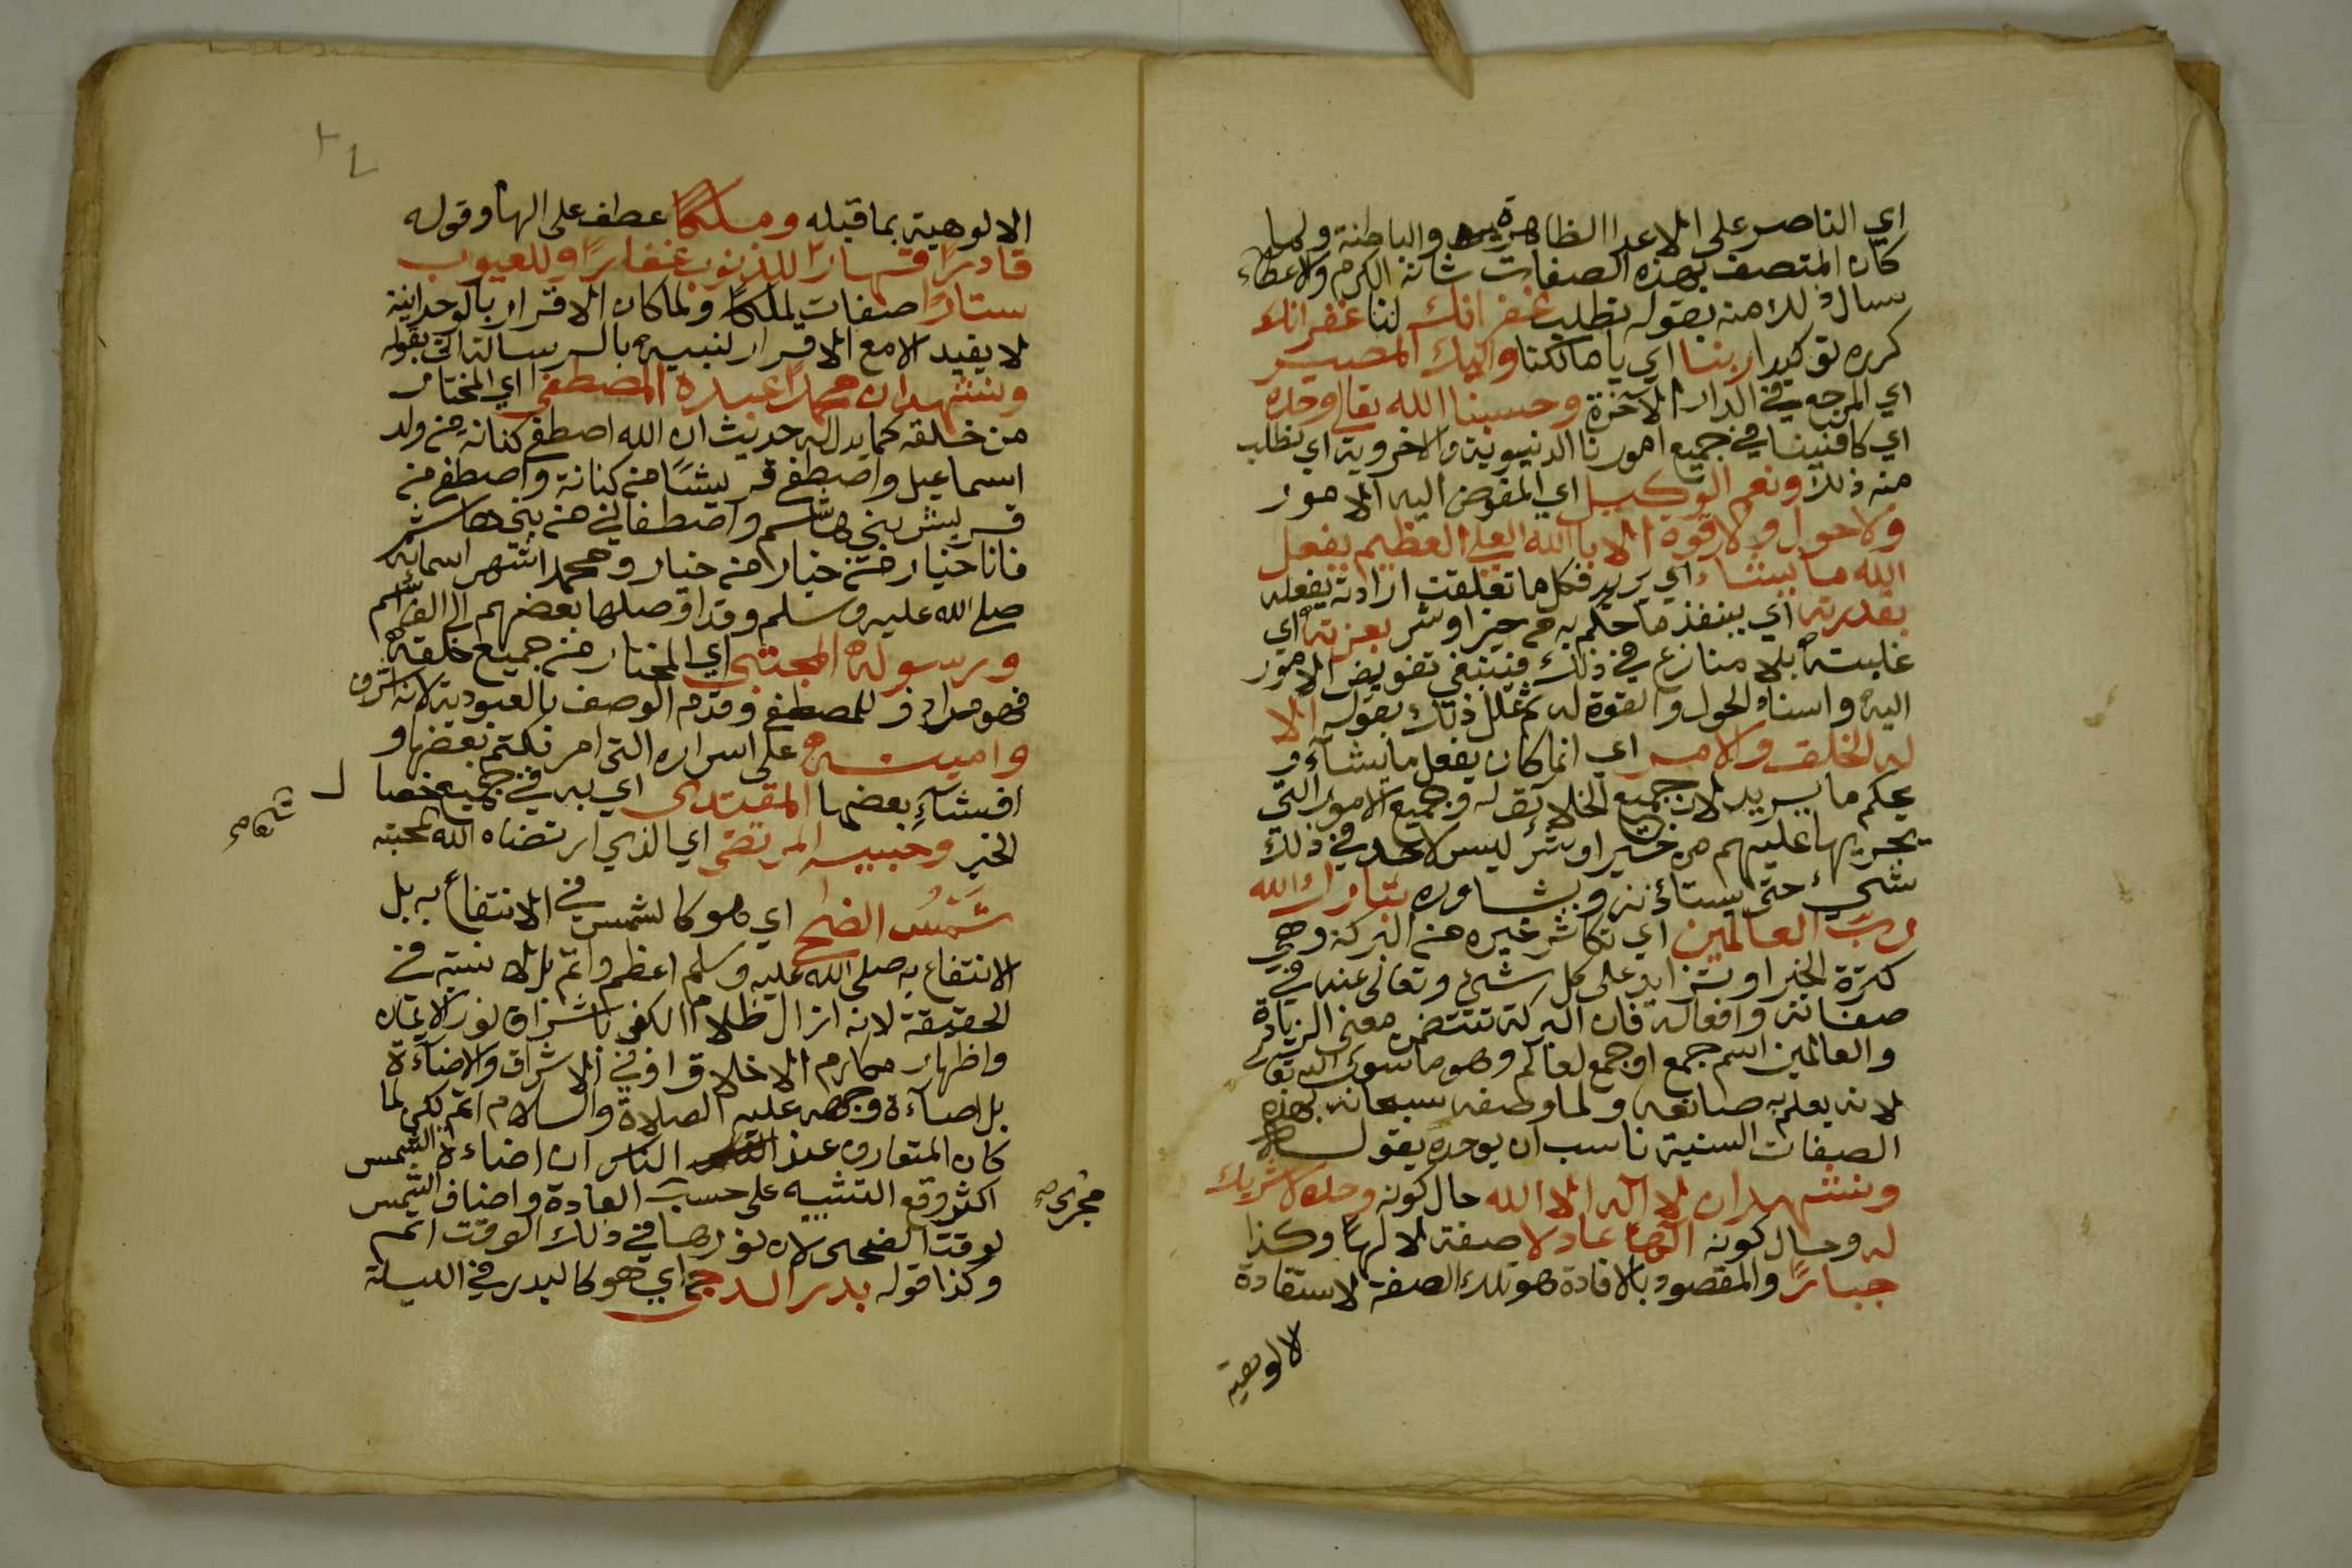 اي الناصر على الاعدا الظاهرة والباطنة ولما
كان المتصف بهذه الصفات شانه الكرم والاعطاء
سال ذلك منه بقوله نطلب غفرانك لنا غفرانك
كرره توكيدا ربنا اي يا مالكنا واليك المصير
اي المرجع في الدار الآخرة وحسبنا الله تعالى وحده
اي كافينا في جميع امورنا الدنيوية والاخروية اي نطلب
منه ذلك ونعم الوكيل اي المفوض اليه الامور
ولا حول ولا قوة الا بالله العلي العظيم يفعل
الله ما يشاء اي يريد فكل ما تعلقت ارادته يفعله
بقدرته اي ينفذ ما حكم به من خير او شر بعزته اي
غلبته بلا منازع في ذلك فينبغي تفويض الامور
اليه واسناد الحول والقوة له ثم علل ذلك بقوله الا
له الخلق والامر اي انما كان يفعل ما يشآء و
يحكم ما يريد لان جميع الخلائق له وجميع الامور التي
يجريها عليهم من خير او شر ليس لاحد في ذلك
شيء حتى يستأذنه ويشاوره تبارك الله
رب العالمين اي تكاثر خيره من البركة وهي
كثرة الخير او تزايد على كل شيء وتعالى عنه في
صفاته وافعاله فان البركة تتضمن معنى الزيادة
والعالمين اسم جمع او جمع لعالم وهو ما سوى الله تعالى
لانه يعلم به صانعه ولما وصفه سبحانه بهذه
الصفات السنية ناسب ان يوحده بقوله
ونشهد ان لا اله الا الله حال كونه وحده لا شريك
له وحال كونه الها عادلا صفة لالها وكذا
جبارا والمقصود بالافادة هو تلك الصفة لاستفادة
الالوهية
الالوهية بما قبله وملكا عطف على الها وقوله
قادرا قهارا للذنوب غفارا وللعيوب
ستارا صفات لملكا ولما كان الاقرار بالوحدانية
لا يفيد الا مع الاقرار لنبيه بالرسالة اتى بقوله
ونشهد ان محمدا عبده المصطفى اي المختار
من خلقه كما يدل له حديث ان الله اصطفى كنانة من ولد
اسماعيل واصطفى قريشا من كنانة واصطفى من
قريش بني هاشم واصطفاني من بني هاشم
فانا خيار من خيار من خيار ومحمد اشهر اسمائه
صلى الله عليه وسلم وقد اوصلها بعضهم الى الف اسم
ورسوله المجتبى اي المختار من جميع خلقه
فهو مرادف للمصطفى وقدم الوصف بالعبودية لانه اشرف
وامينه على اسراره التي امر بكتم بعضها و
افشآء بعضها المقتدى اي به في جميع خصال
الخير وحبيبه المرتضى اي الذي ارتضاه الله لمحبته
شمس الضحى اي هو كالشمس في الانتفاع به بل
الانتفاع به صلى الله عليه وسلم اعظم واتم بل لا نسبة في
الحقيقة لانه ازال ظلام الكفر باشراق نور الايمان
واظهار مكارم الاخلاق او في الاشراق والاضآءة
بل اضآءة وجهه عليه الصلاة والسلام اتم لكن لما
كان المتعارف عند الناس ان اضاءة الشمس
اكثر وقع التشبيه على حسب العادة واضاف الشمس
لوقت الضحى لان نورها في ذلك الوقت اتم
وكذا قوله بدر الدجى اي هو كالبدر في الليلة